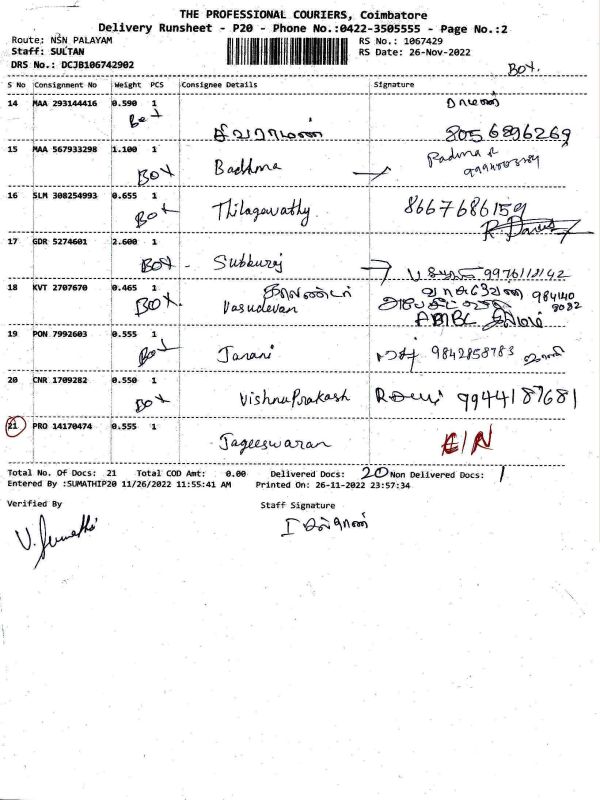 THE PROFESSIONAL COURIERS, Coimbatore
Delivery Runsheet - P20 - Phone No.:0422-3505555 - Page No.:2
Route: NSN PALAYAM
Staff: SULTAN
DRS No.: DCJB106742902
RS No.: 1067429
RS Date: 26-Nov-2022
BOX.
S No Consignment No Weight PCS Consignee Details Signature
14 MAA 293144416 0.590 1
Box சிவராமன் 8056896269
15 MAA 567933298 1.100 1
BOX Badhma Padma
16 SLM 308254993 0.655 1
BOX Thilagavathy 8667686159
17 GDR 5274601 2.600 1
BOX. Subburaj 9976112142
18 KVT 2707670 0.465 1
BOX. Vasudevan வாசுதேவன் 984140
8082
19 PON 7992603 0.555 1
BOX Janani 9842858783
20 CNR 1709282 0.550 1
BOX Vishnu Prakash 9944187681
21 PRO 14170474 0.555 1
Jageeswaran
Total No. Of Docs: 21 Total COD Amt: 0.00 Delivered Docs: 20 Non Delivered Docs: 1
Entered By :SUMATHIP20 11/26/2022 11:55:41 AM Printed On: 26-11-2022 23:57:34
Verified By Staff Signature
V. Sumathi